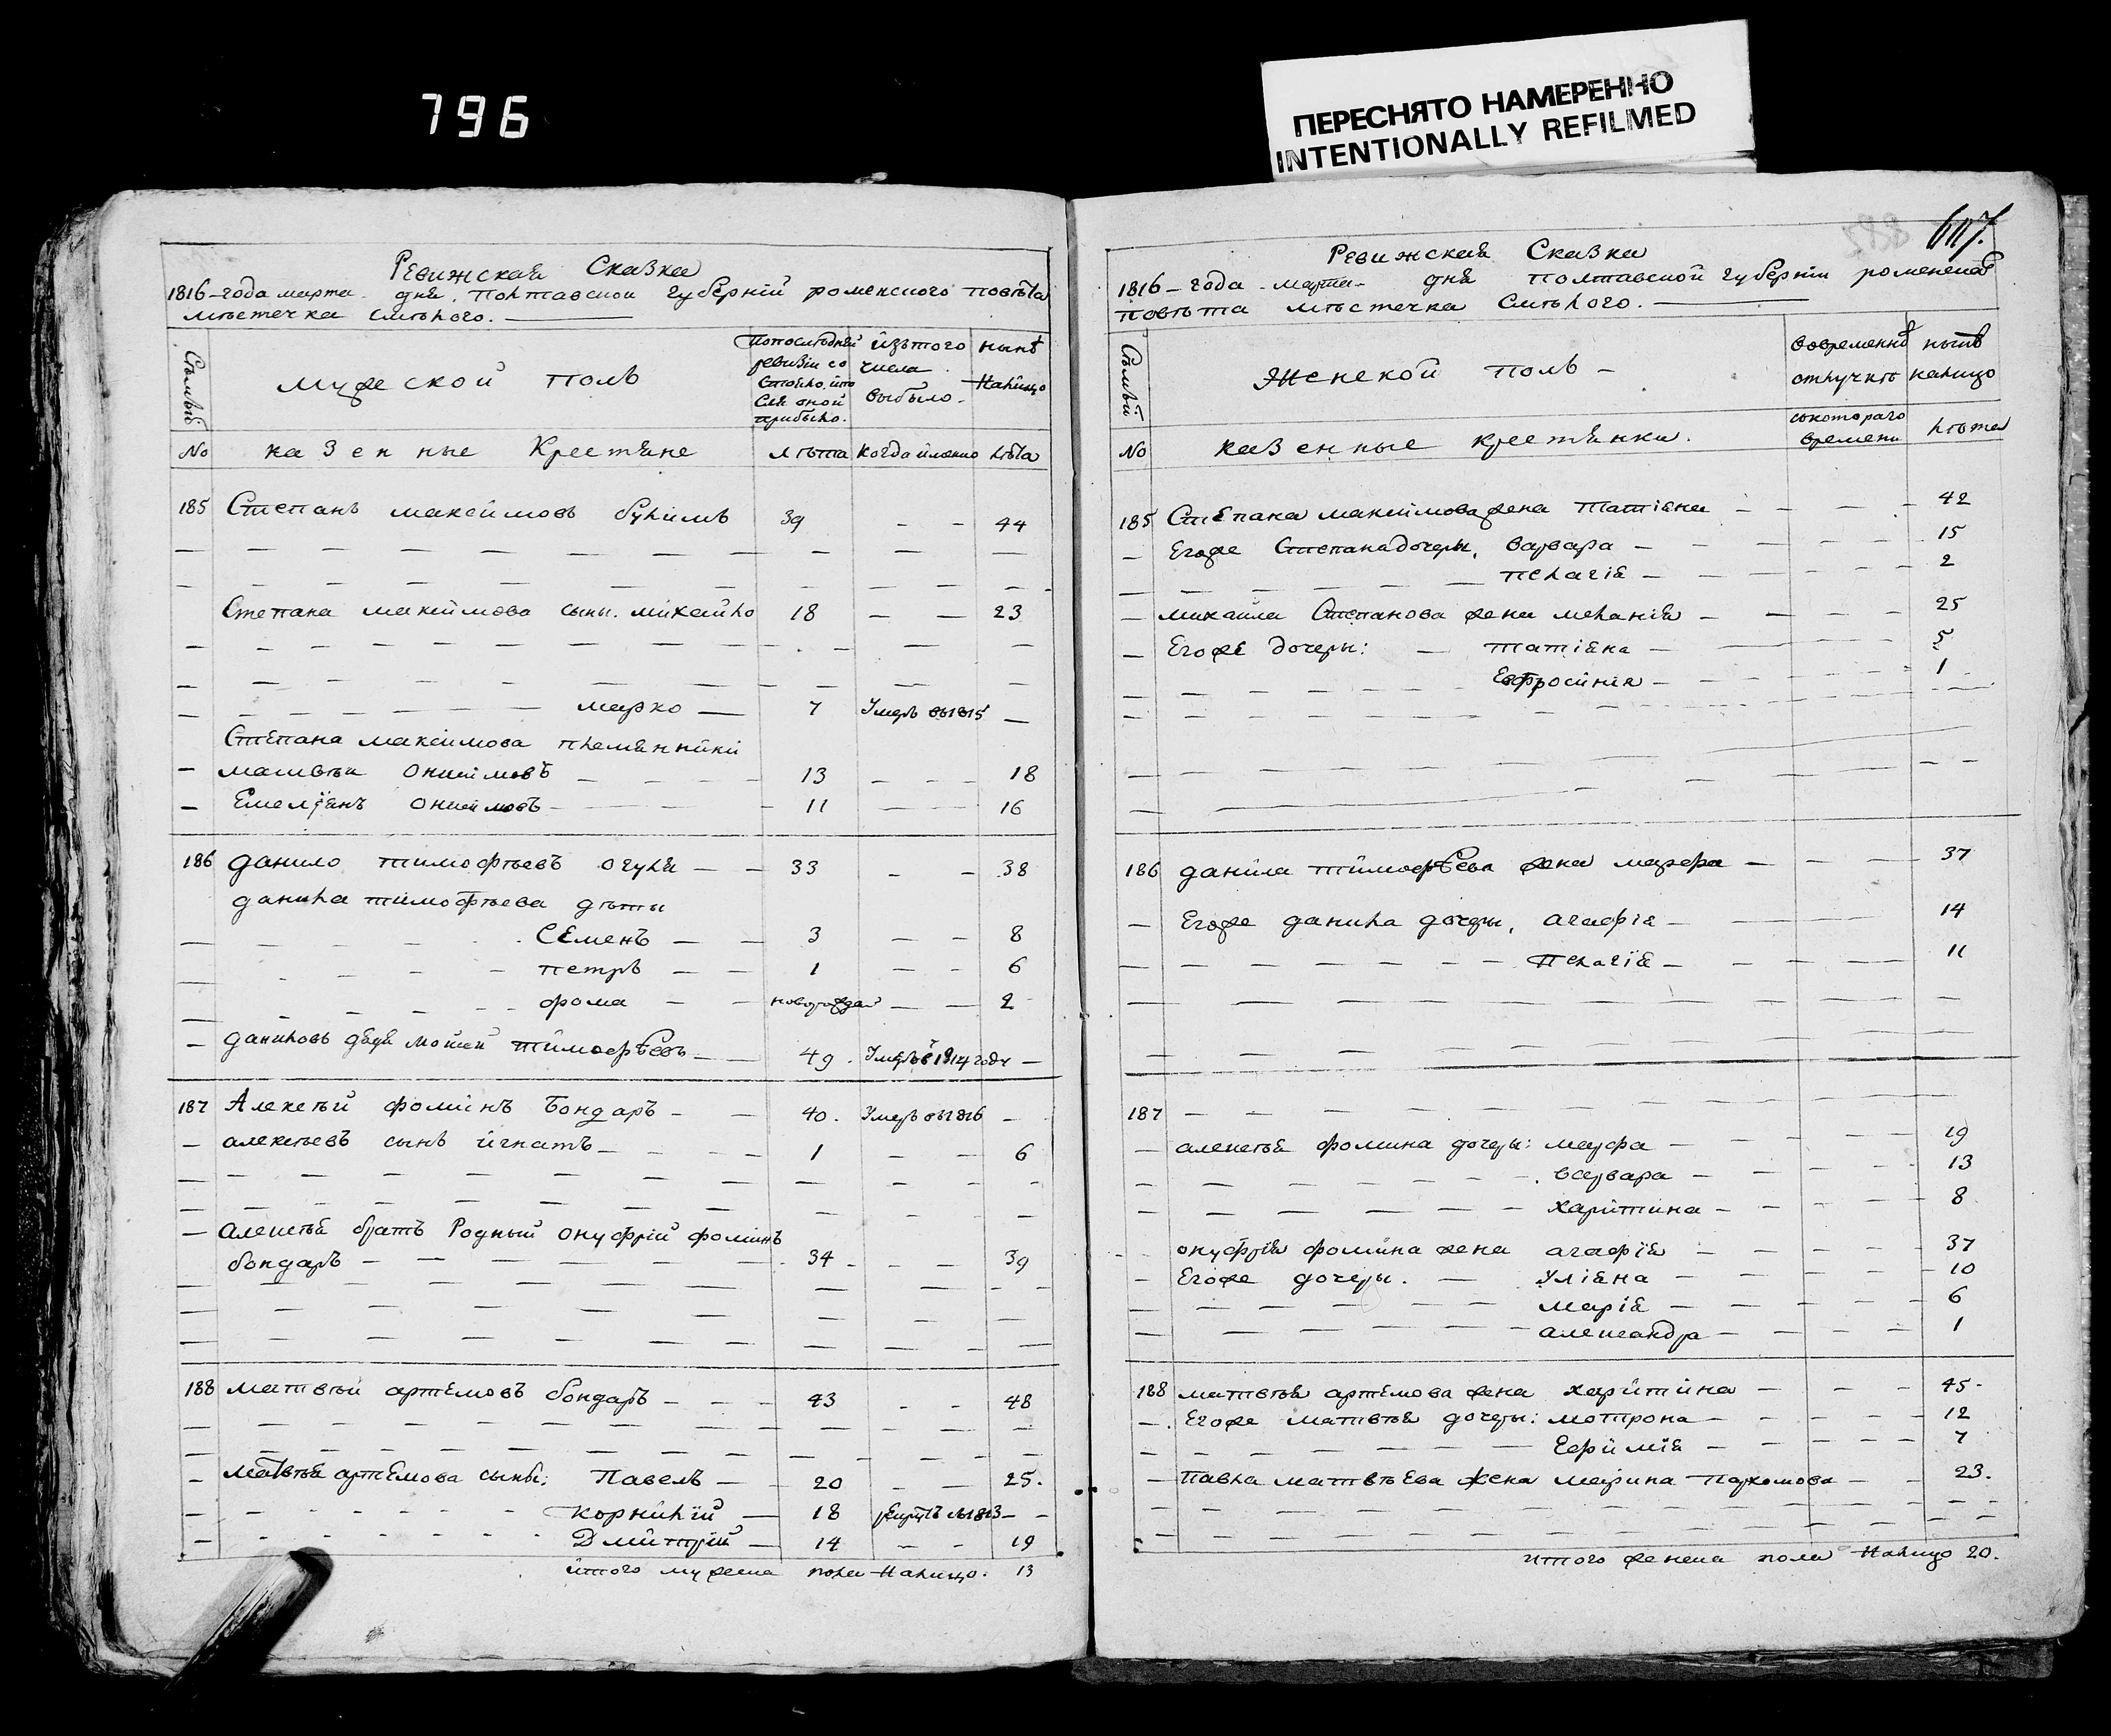 796
ПЕРЕСНЯТО НАМЕРЕННО
INTENTIONALLY REFILMED
Ревижская Сказка
1816-года марта дня. Полтавской губерній роменского повѣта
мѣстечка Смѣлого.
Сѣмьѣй
мужеской полъ
Попослѣдней ревизіи со Стояло, ипо Сля оной прибыло.
Изътого числа выбыло.
нынѣ Налицо
No казенные Крестяне лѣта когда имянно лѣта
185 Степанъ максимовъ булимъ 39 - - 44
Степана максимова сыны. михайло 18 - - 23
марко 7 Умеръ въ1815 -
Степана максимова племянники
- матвѣи онисимовъ 13 - - 18
- Емелїянъ онисимовъ 11 - - 16
186 данило тимофѣевъ огуля 33 - - 38
данила тимофѣева дѣты
Семенъ 3 - - 8
петръ 1 - - 6
фома новорожда - - 2
- даниловъ дядя мойсей тимофѣевъ 49. Умеръ в 1814 году -
187 Алексѣй фоминъ Бондаръ 40. Умеръ въ1816 -
- алексѣевъ сынъ игнатъ 1 - - 6
- алексѣя братъ Родный онуфрїй фоминъ
бондаръ 34 - - 39
188 матвѣй артемовъ бондаръ 43 - - 48
- матвѣя артемова сыны: Павелъ 20 - - 25.
корнилїй 18 рекрутъ въ1813 -
Дмитрїй 14 - - 19
итого мужеска пола Налицо. 13
617.
Ревижская Сказка
1816-года марта дня полтавской губерніи роменского
повѣта мѣстечка Смѣлого.
Сѣмьѣй
Женской полъ -
вовременно отлучкѣ
нынѣ налицо
No казенные крестянки.
скотораго времени
лѣта
185 Степана максимова жена Татіяна 42
- Егоже Степана дочеры, Варвара 15
пелагія 2
- михаила Степанова жена меланія 25
- Егоже дочеры: татіяна 5
Евфросинія 1
186 данила тимофѣева жена марфа 37
- Егоже данила дочеры, агафія 14
Пелагїя 11
187
- алексѣя фомина дочеры: марфа 19
варвара 13
харитина 8
онуфрїя фомина жена агафїя 37
- Егоже дочеры. уліяна 10
марія 6
александра 1
188 матвѣя артемова жена харитина 45.
- Егоже матвѣя дочеры: мотрона 12
Ефимїя 7
- павла матвѣева жена марина пархомова 23.
итого женска пола Налицо 20.